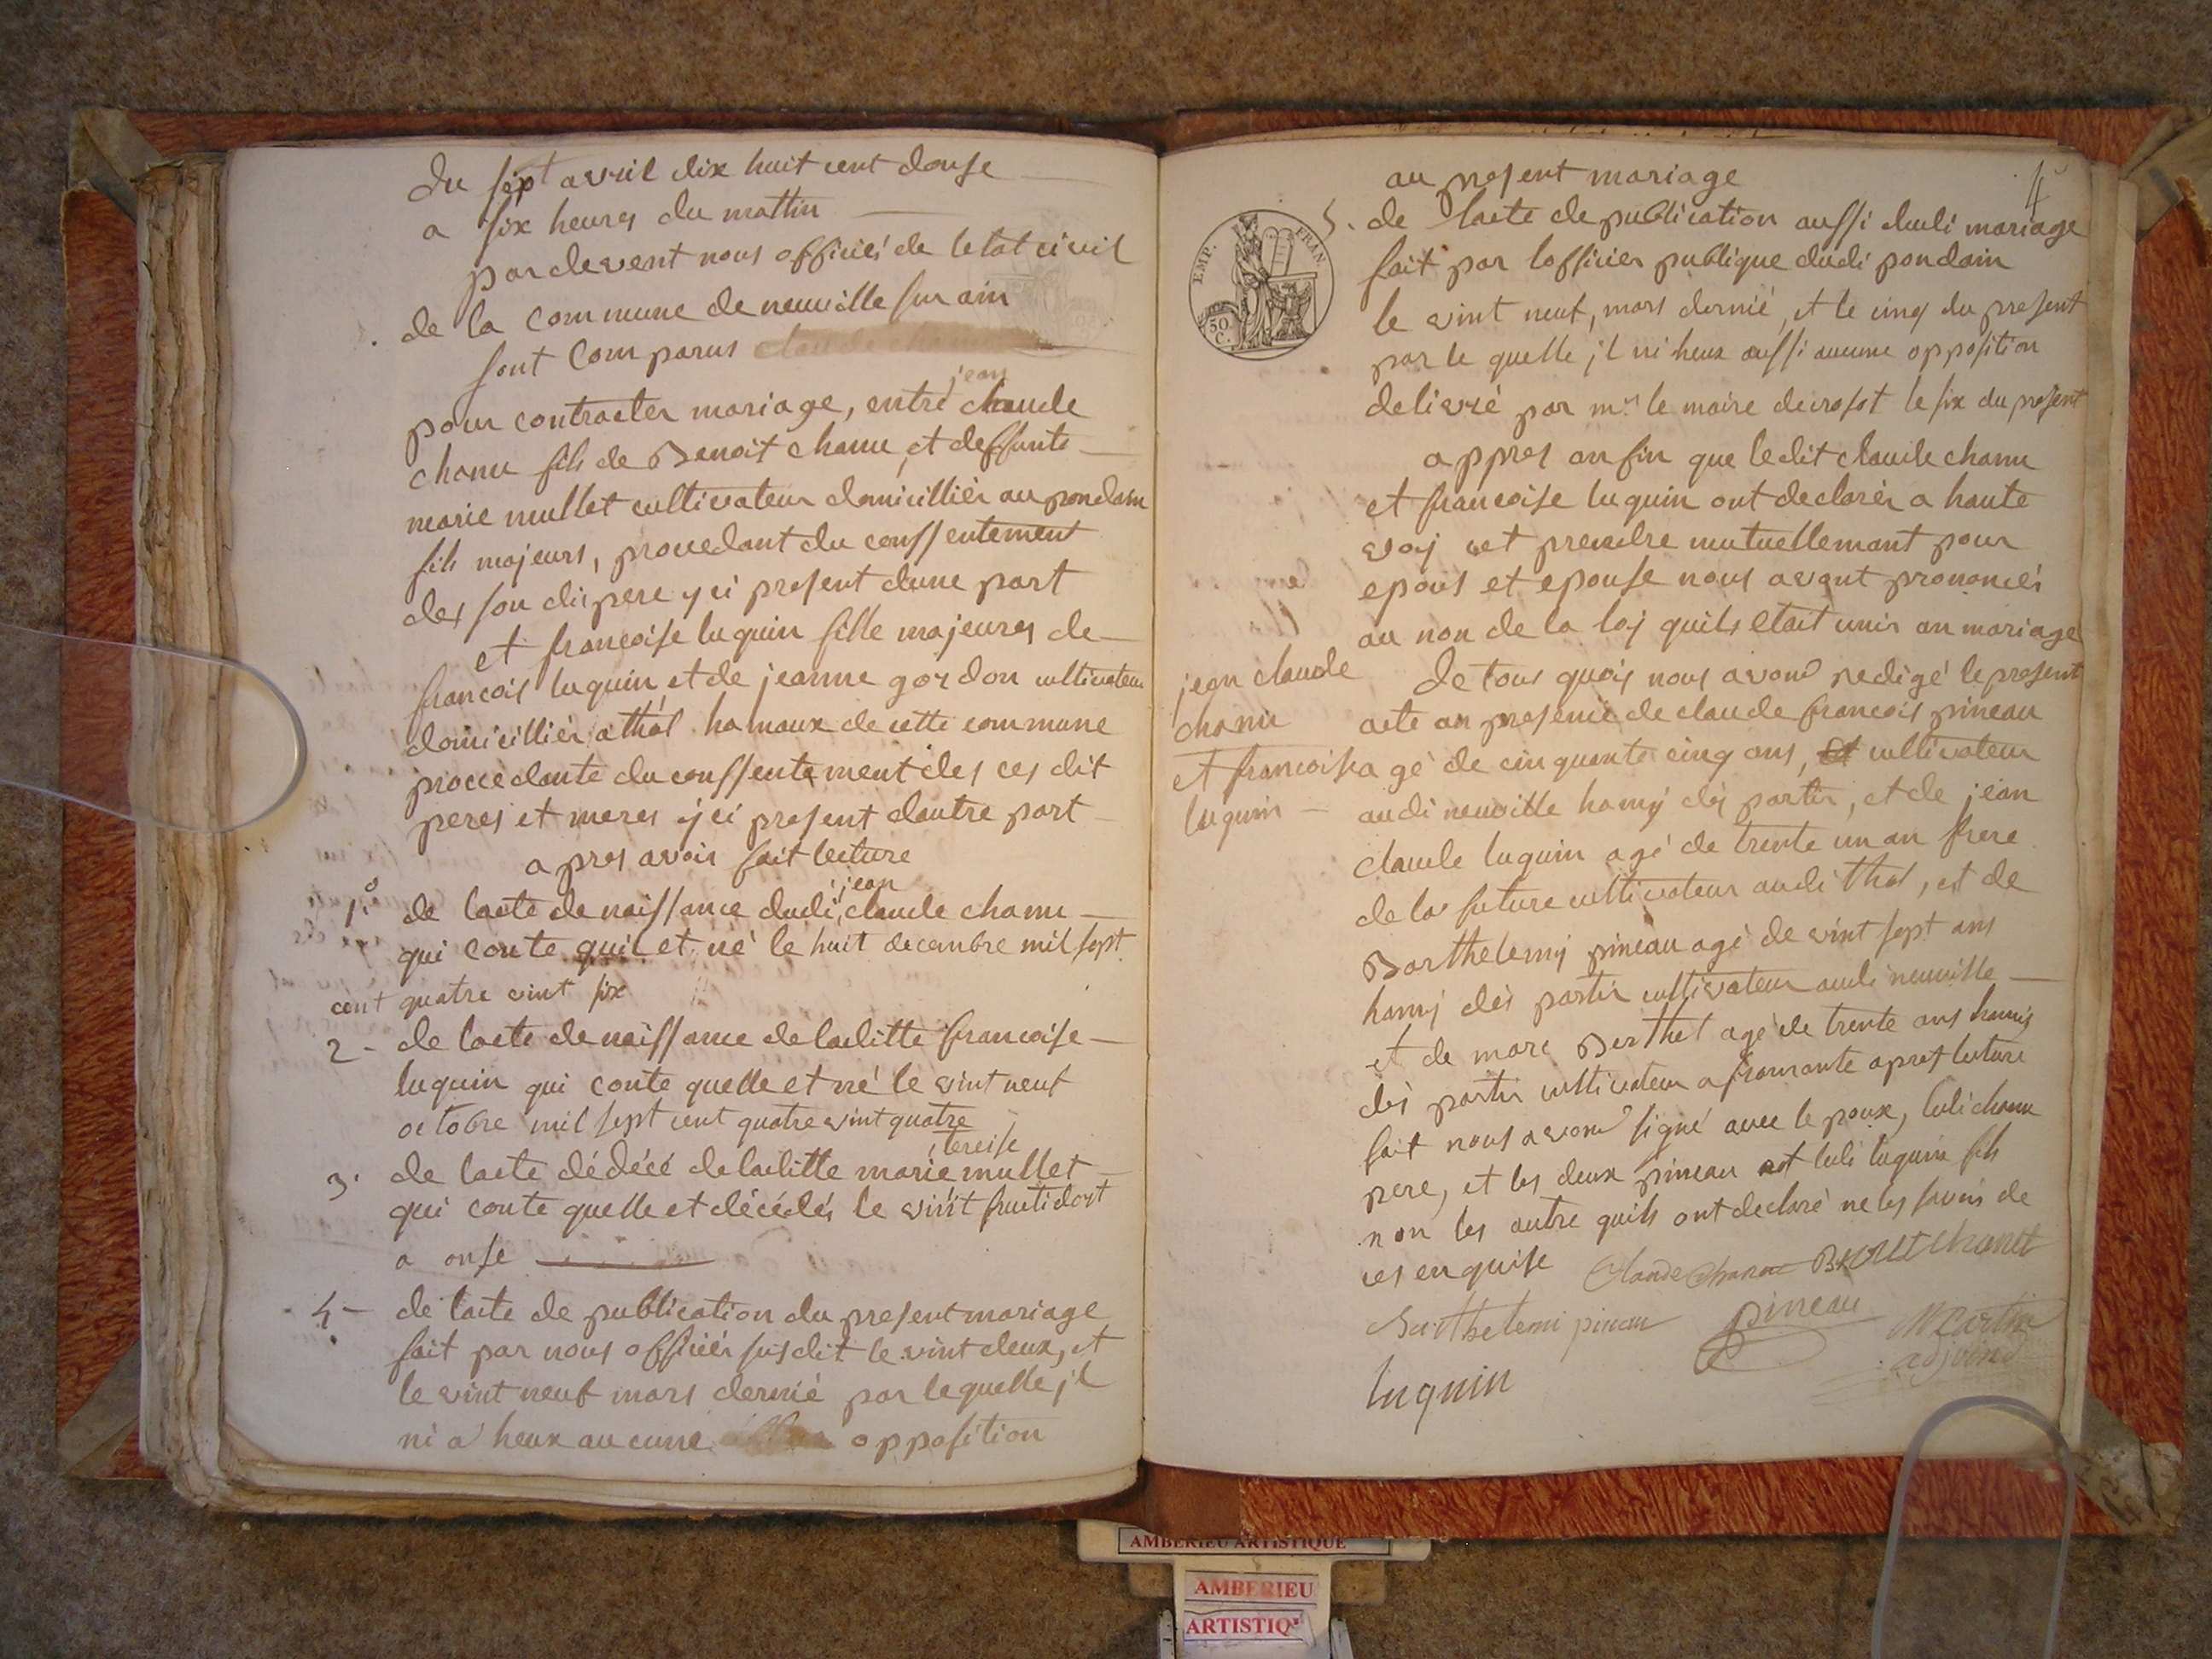 du sept avril dix huit cent douse
a six heures du mattin
pardevent nous officiér de letat civil
de la commune de neuville sur ain
sont comparus
jean
pour contracter mariage, entre claude
chanu fils de Benoit chanu, et deffunte
marie mullet cultivateur domicilliér au pondain
fils majeurs, procedant du conssentement
des son dis pere yci present dune part
et francoise luquin fille majeures de
francois luquin et de jeanne gordon cultivateur
domicilliér a thôl hamaux de cette commune
procedante du conssentement des ces dit
peres et meres yci present dautre part
apres avoir fait lecture
jean
1.º de lacte de naissance dudi, claude chanu
qui conte quil et né le huit decembre mil sept
cent quatre vint six
2 - de lacte de naissance de laditte francoise
luquin qui conte quelle et né le vint neuf
octobre mil sept cent quatre vint quatre
, tereise
3. de lacte dédécé de laditte marie mullet
qui conte quelle et décédés le vinit fructidort
a onse
4 - de lacte de publication du present mariage
fait par nous officiér susdit le vint deux, et
le vint neuf mars dernié par lequelle jl
ni a heux aucune opposition
4
au present mariage
EMP. FRAN.
50 C.
5. de lacte de publication aussi dudi mariage
fait par lofficier publique dudi pondain
le vint neuf, mars dernié, et le cinq du present
par le quelle jl ni heux aussi aucune opposition
delivré par mr. le maire de crosot le six du present
appres anfin que ledit claude chanu
et francoise luquin ont declarér a haute
voij et prendre mutuellemant pour
epous et epouse nous avont prononcés
au non de la loj quils etait unis an mariage
jean claude
chanu
et francoise
luquin
de tous quoij nous avons redigé le present
acte an presence de claude francois pineau
agé de cinquante cinq ans, et cultivateur
audi neuville hamij dés partis, et de jean
claude luquin agé de trente un an frere
de la future cultivateur audi thol, et de
Barthelemij pineau agé de vint sept ans
hamij dés partis cultivateur audi neuville
et de marc Berthet agé de trente ans hamis
dés partis cultivateur a fromante apres lecture
fait nous avons signé avec le poux, ludi chanu
pere, et les deux pineau et ludi luquin fils
non les autre quils ont declaré ne les savoir de
ces enquise Claude chanu Benoit chanut
Barthelemi pineau pineau Martin
adjoind
luquin
AMBERIEU ARTISTIQUE
AMBERIEU
ARTISTIQUE